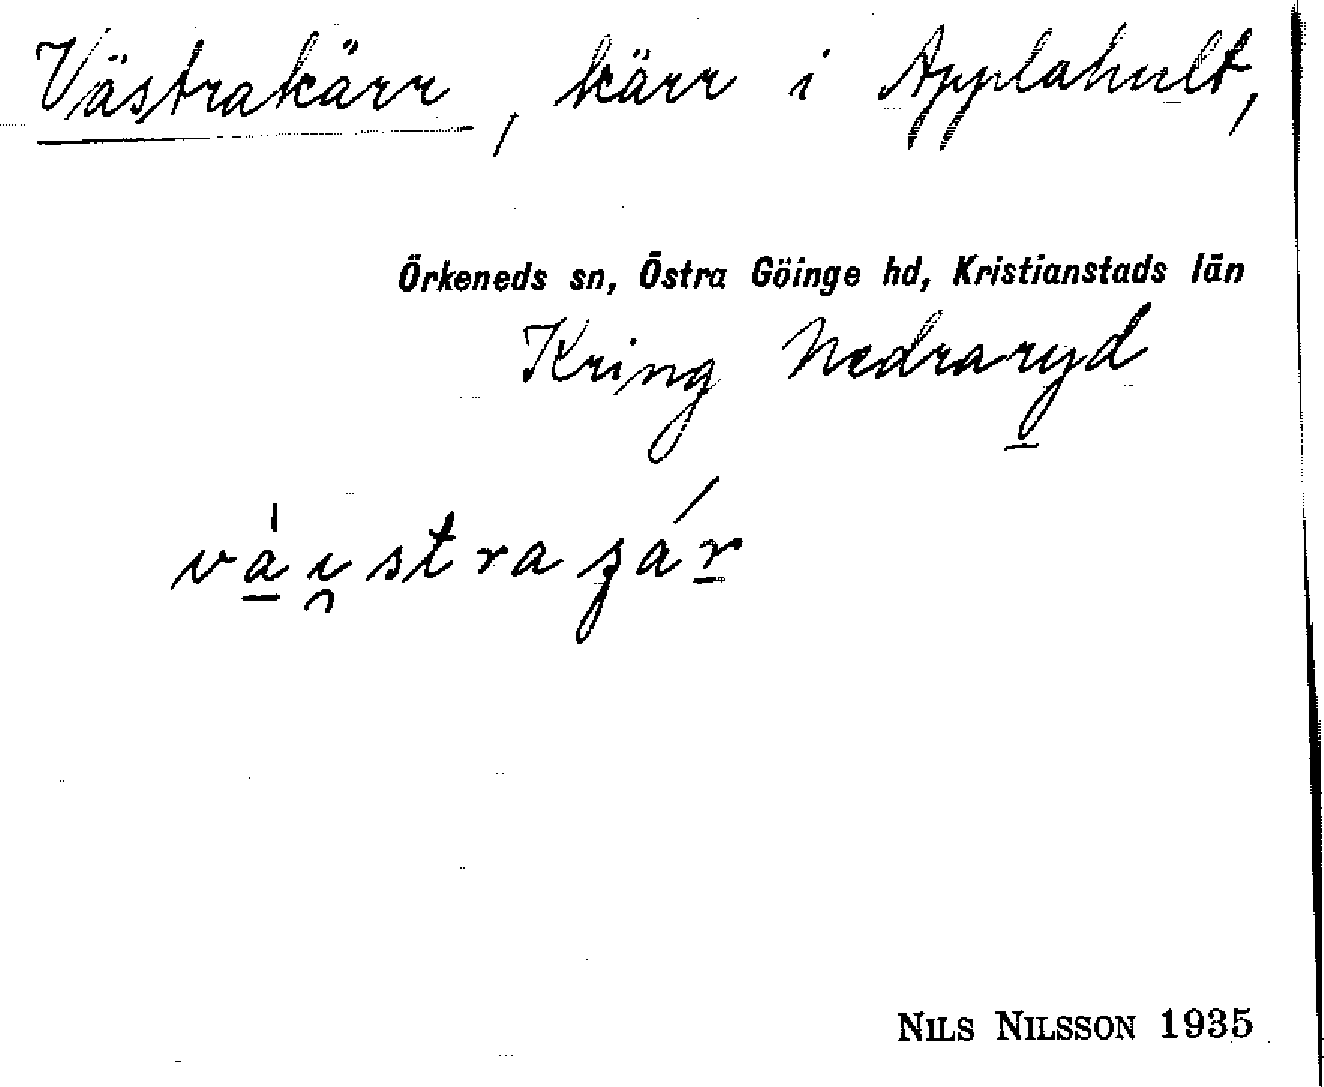 Västrakärr, kärr i Applahult,
Örkeneds sn, Östra Göinge hd, Kristianstads län
Kring Nedraryd
NILS NILSSON 1935